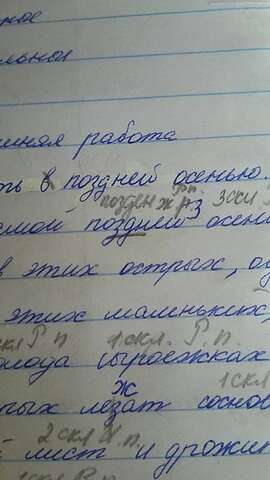 ное
льной
шняя работа
ть в поздней осенью.
Р.п. 3 скл
самой поздней осени
в этих острых, о
этих маленьких,
скл Р.п 1 скл. Р.п.
сыроежках
ж 1 скл
рых лезат соснов
2 скл И.п.
лист и дрожит